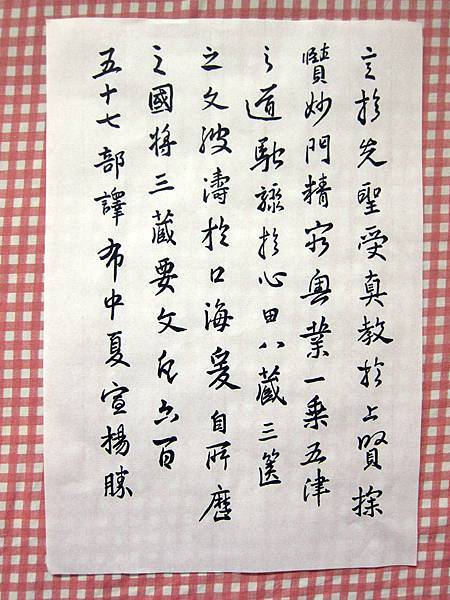 言於先聖受真教於上賢探
賾妙門精窮奧業一乘五津
之道馳驟於心田八藏三篋
之文波濤於口海爰自所歷
之國將三藏要文凡六百
五十七部譯布中夏宣揚勝